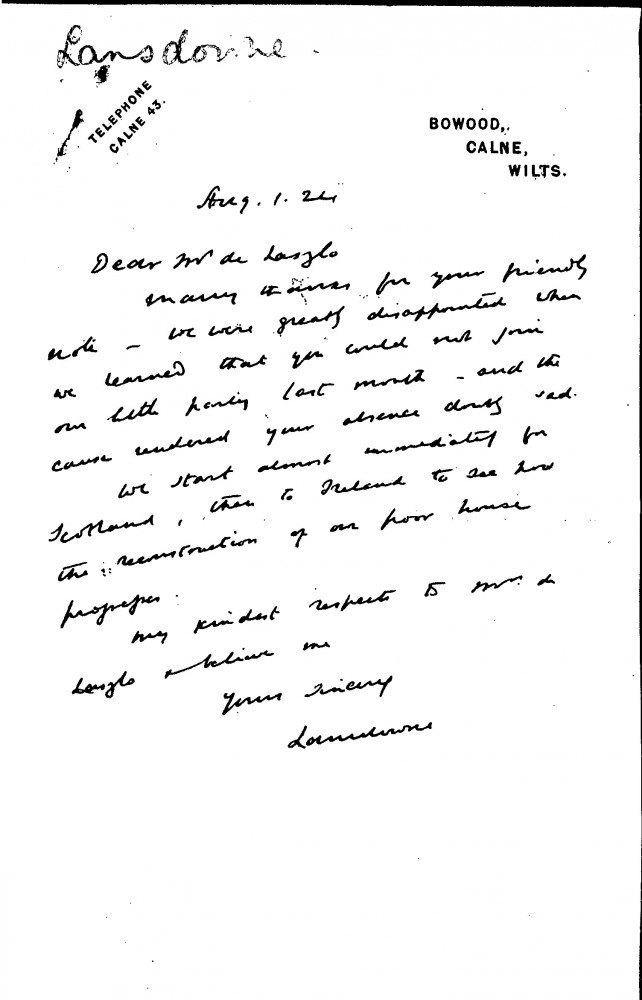 Lansdowne.
TELEPHONE
CALNE 43.
BOWOOD,
CALNE,
WILTS.
Aug. 1. 24
Dear Mr de Laszlo
Many thanks for your friendly
note – we were greatly disappointed when
we learned that you could not join
our little party last month – and the
cause rendered your absence doubly sad.
We start almost immediately for
Scotland, then to Ireland to see how
the reconstruction of our poor house
progresses.
My kindest respects to Mrs de
Laszlo & believe me
Yours sincerely
Lansdowne